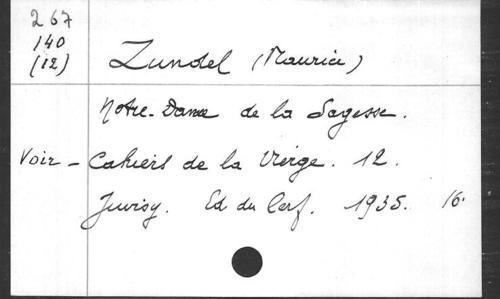 267
140
(12)
Zundel (Maurice)
Notre-Dame de la Sagesse.
Voir - Cahiers de la Vierge. 12.
Juvisy. Ed du Cerf. 1935. 16.